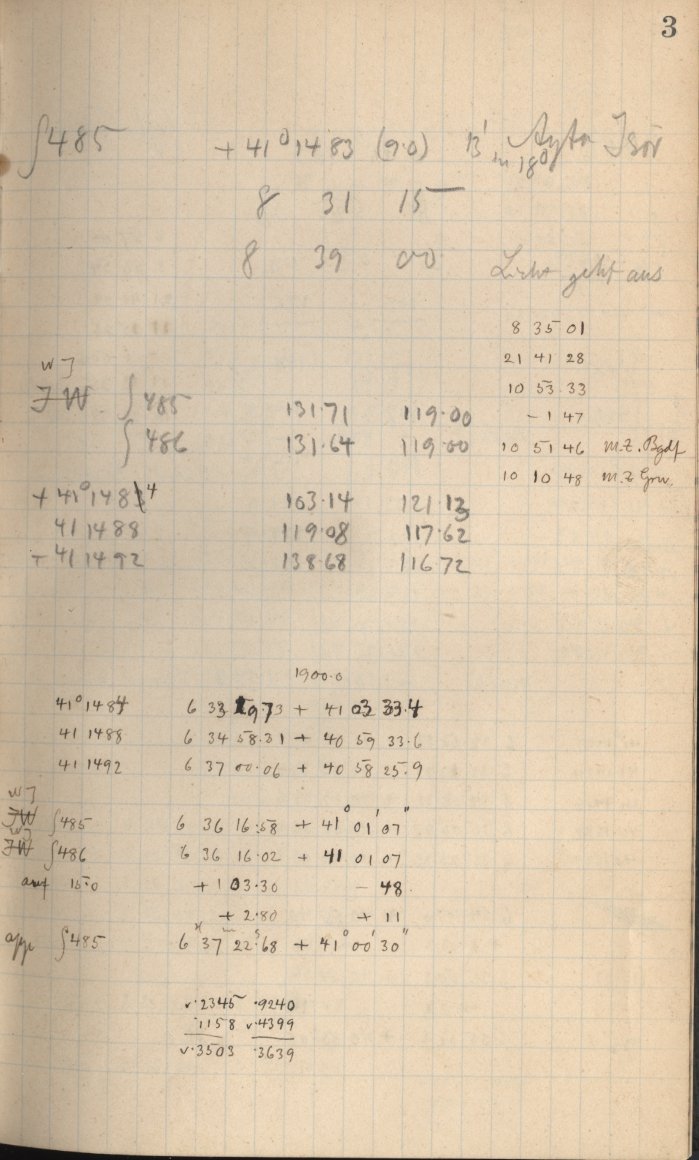 3
∫485 + 41° 1483 (9.0) B' in 18°
8 31 15
8 39 00 Licht geht aus
8 35 01
21 41 28
10 53 33
- 1 47
10 51 46 M.Z. Bgdf
10 10 48 M.Z Grw.
WJ
JW. ∫485 131.71 119.00
∫486 131.64 119.00
+ 41° 1484 103.14 121.13
41 1488 119.08 117.62
+ 41 1492 138.68 116.72
1900.0
41° 1484 6 33 + 41 03 33.4
41 1488 6 34 58.31 + 40 59 33.6
41 1492 6 37 00.06 + 40 58 25.9
WJ
JW ∫485 6 36 16.58 + 41° 01' 07"
WJ
JW ∫486 6 36 16.02 + 41 01 07
auf 15.0 + 1 03.30 - 48.
+ 2.80 + 11
app ∫485 6h 37m 22s.68 + 41° 00' 30"
v.2345 .9240
.1158 v.4399
v.3503 .3639